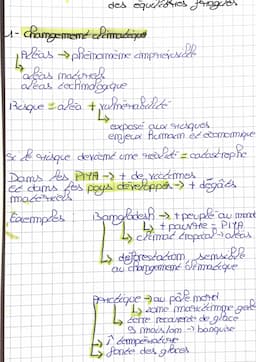 des équilibres fragiles
1 - changement climatique
Aléas → phénomène imprévisible
aléas naturels
aléas technologique
Risque = aléa + vulnérabilité
exposé aux risques
enjeux humain et économique
Si le risque devient une réalité = catastrophe
Dans les PMA → + de victimes
Et dans les pays développés → + dégâts
matériels
Exemples : Bangladesh → + peuplé au mond
+ pauvre = PMA
climat tropical → aléas
déforestation, sensible
au changement climatique
Arctique → au pôle nord
zone maritime gelé
terre recouverte de glace
9 mois/an → banquise
↑ température
fonte des glaces